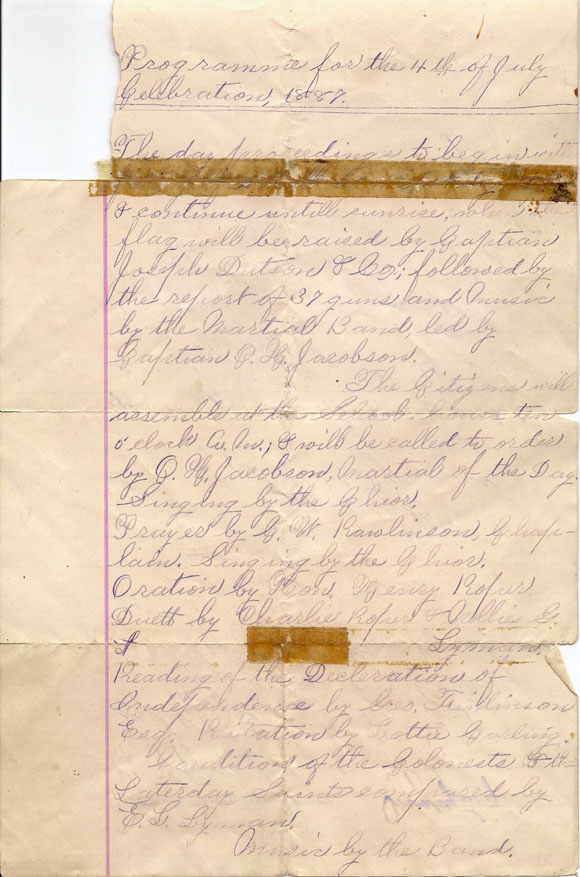 Programme for the 4th of July
Celebration, 1887.
The day proceedings to begin with
& continue untill sunrise, when the
flag will be raised by Captian
Joseph Dutson & Co; followed by
the report of 37 guns and Music
by the Martial Band, led by
Captian O. H. Jacobson.
The Citizens will
assemble at the School House ten
o'clock A. M.; & will be called to order
by O. H. Jacobson, Martial of the Day.
Singing by the Chior.
Prayer by C. W. Rawlinson, Chap-
lain. Singing by the Chior.
Oration by Hon. Henry Roper.
Duett by Charlie Roper & Nellie G.
Lyman.
Reading of the Decleration of
Independence by Geo, Finlinson
Esq. Recitation by Lottie Carling.
Condition of the Colonests & the
Laterday Saints compared by
E. L. Lyman.
Music by the Band.